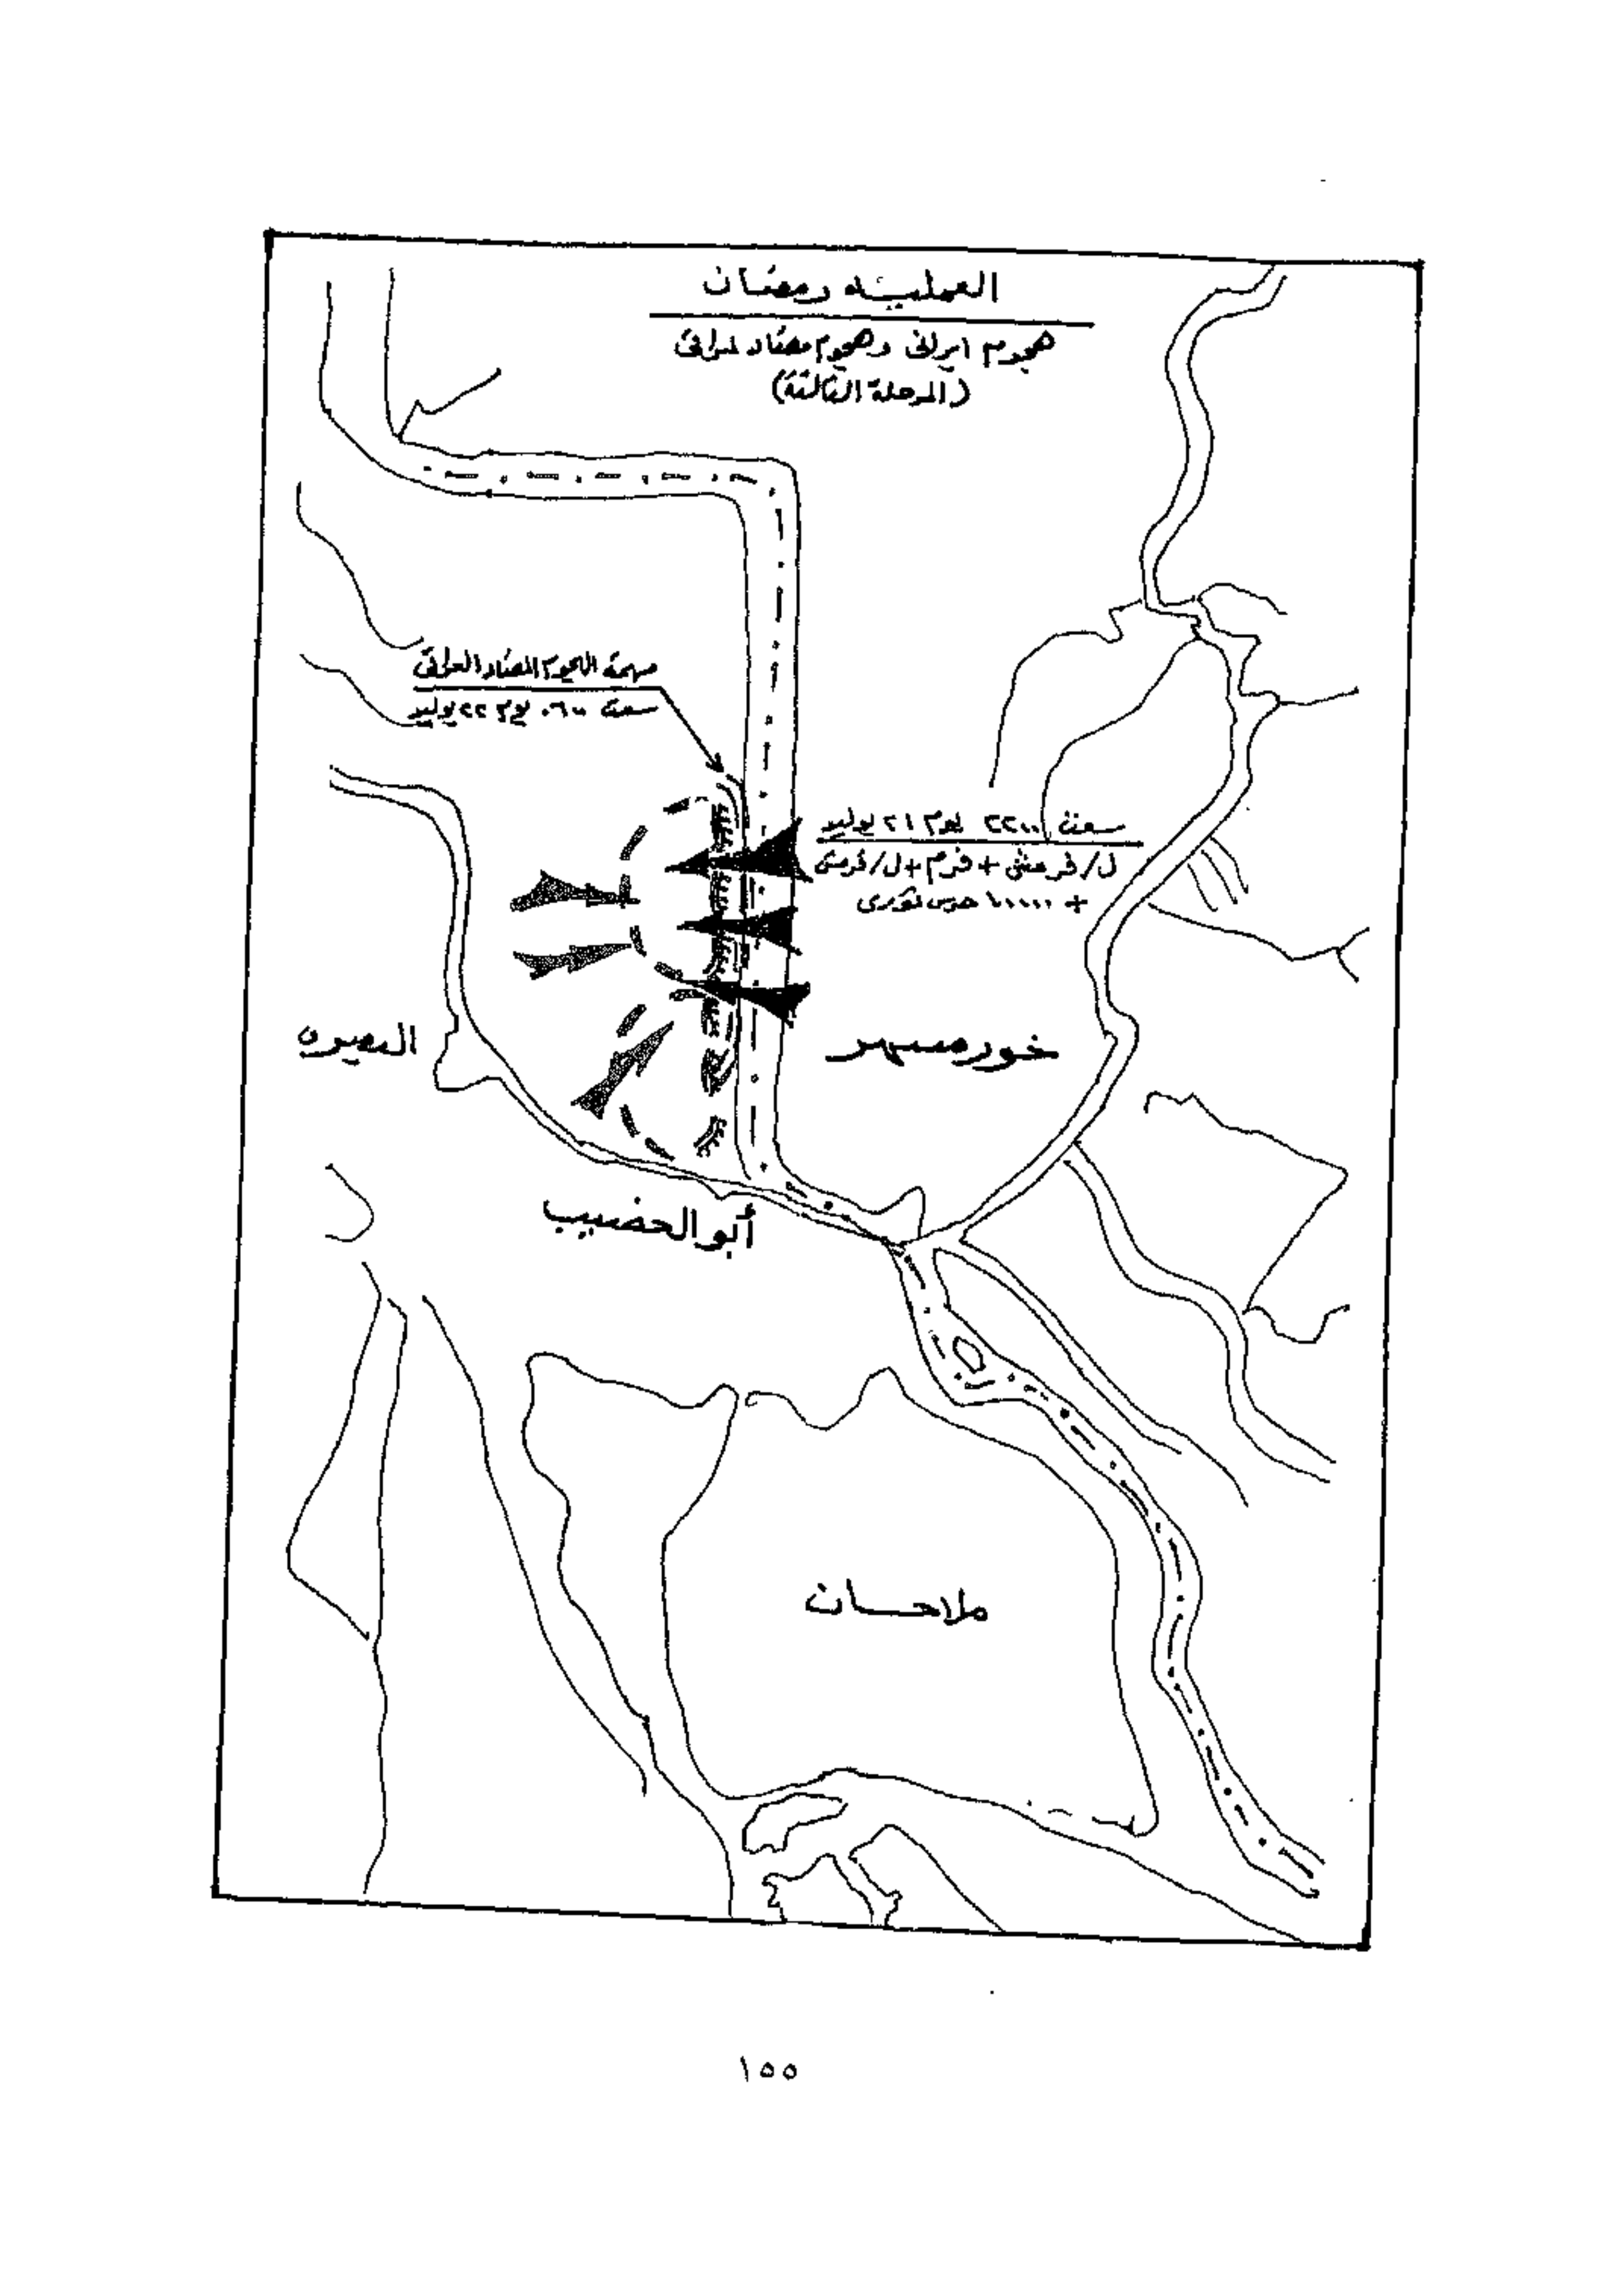 العملية رمضان
هجوم ايرانى وهجوم مضاد عراقى
(المرحلة الثالثة)
مهمة الهجوم المضاد العراقى
سعت ٠٦٠٠ يوم ٢٢ يوليو
سعت ٢٢٠٠ يوم ٢١ يوليو
ل/فر مش + فرم + ل/فرمدى
+ ١٠٠٠٠٠ حرس ثورى
البصره
خورمسهر
أبو الخصيب
ملاحسان
١٥٥